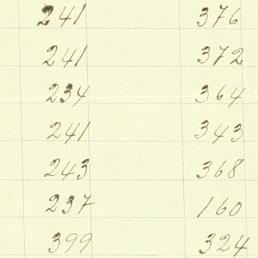 241 376
241 372
234 364
241 343
243 368
237 160
399 324